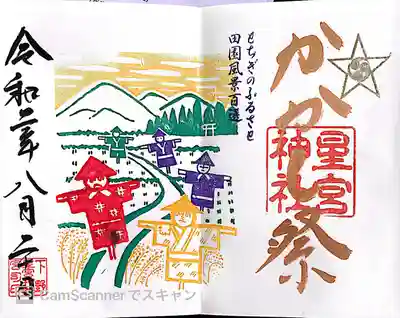 かかし祭
星宮
神社
とちぎのふるさと
田園風景百選
令和二年八月二十
CamScannerでスキャン